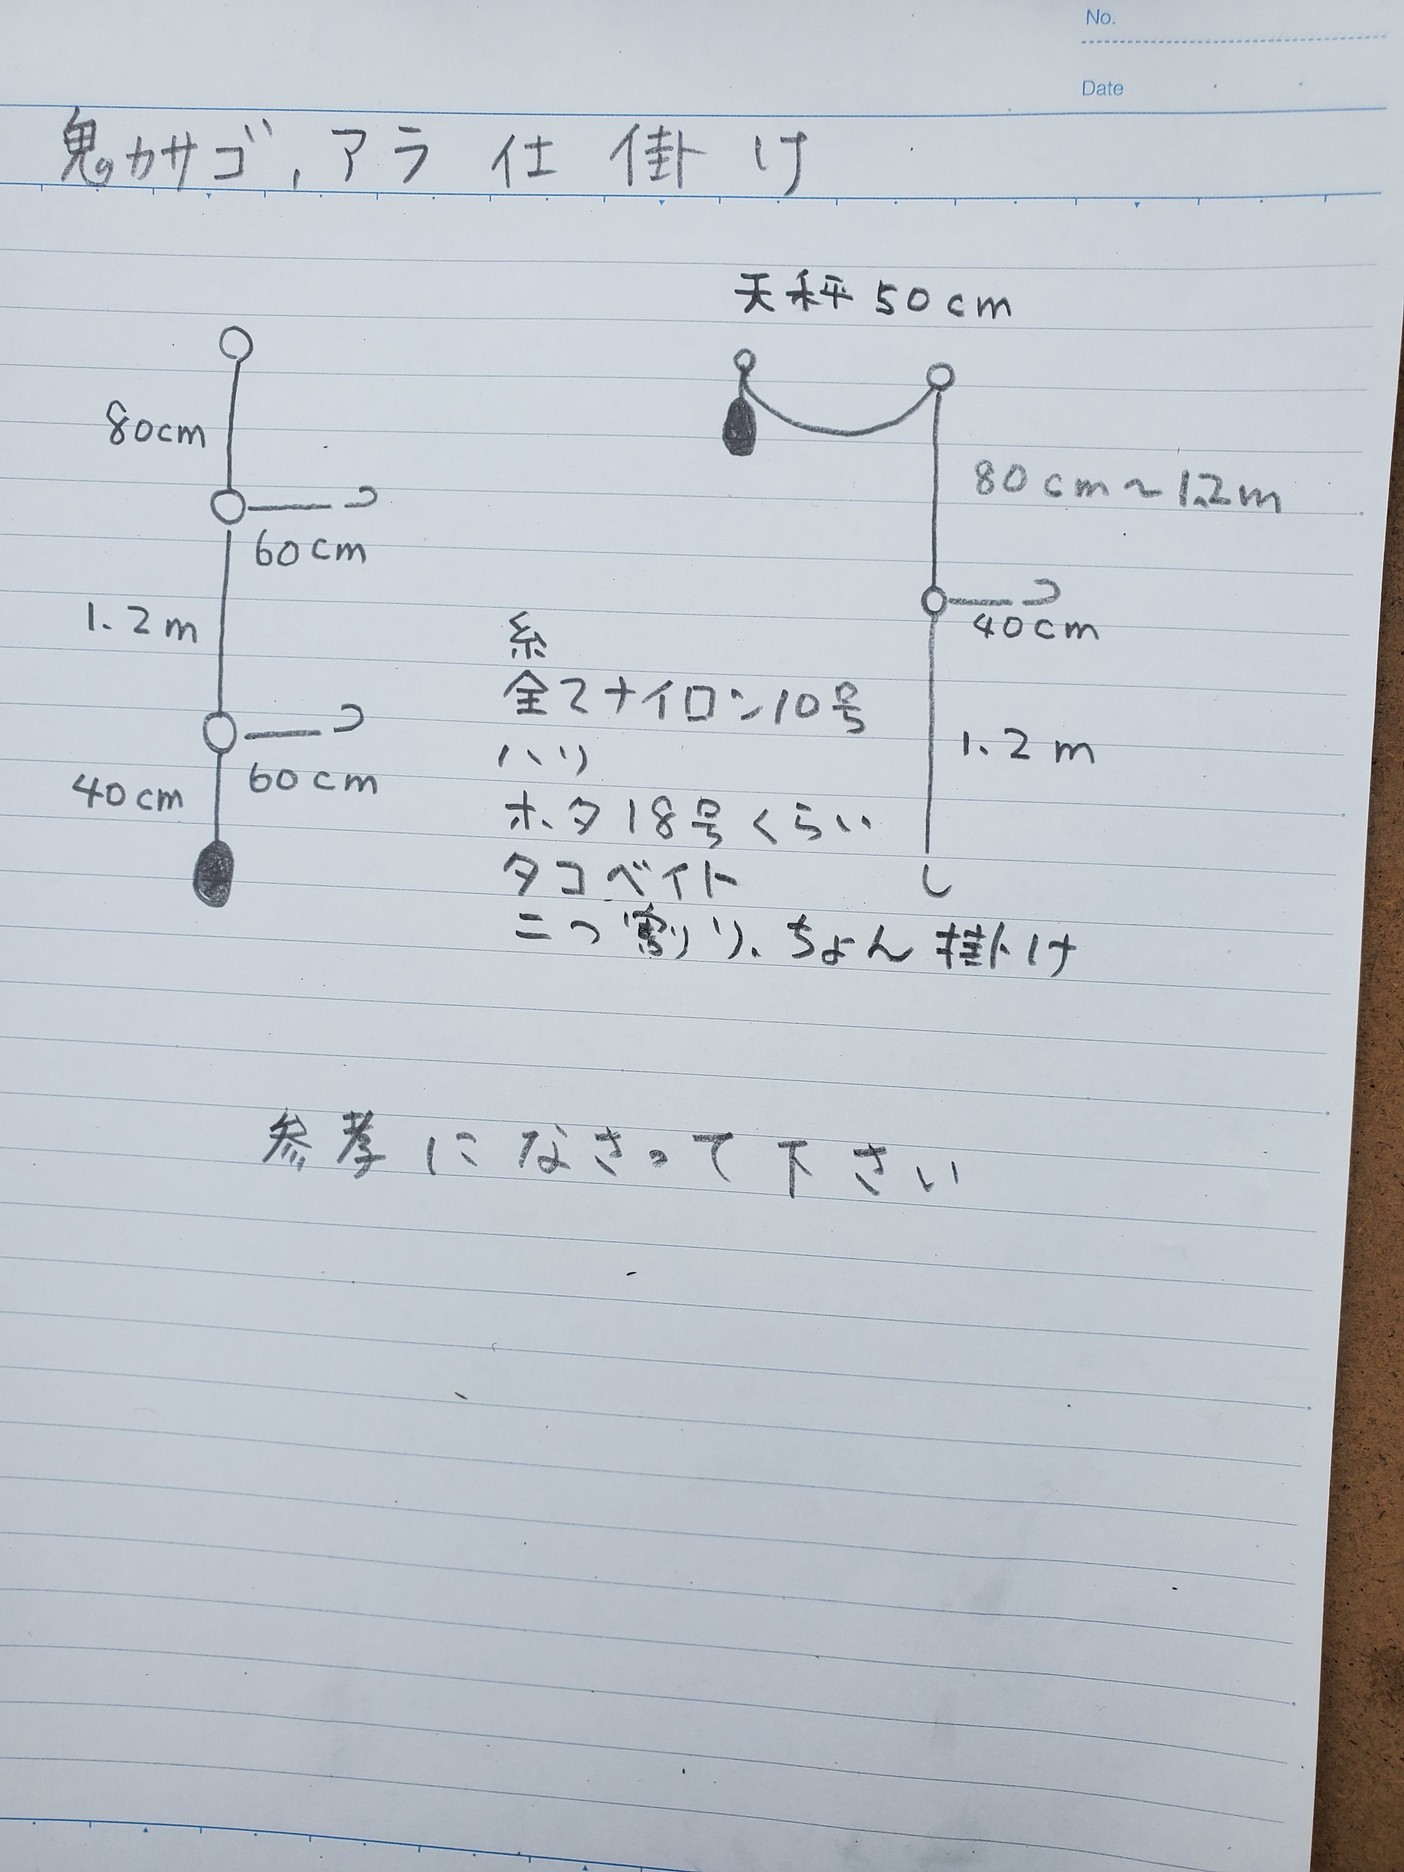 No.
Date
鬼カサゴ、アラ仕掛け
天秤50cm
80cm
60cm
1.2m
60cm
40cm
80cm～1.2m
40cm
1.2m
糸
全てナイロン10号
ハリ
ホタ18号くらい
タコベイト
二つ割り、ちょん掛け
参考になさって下さい